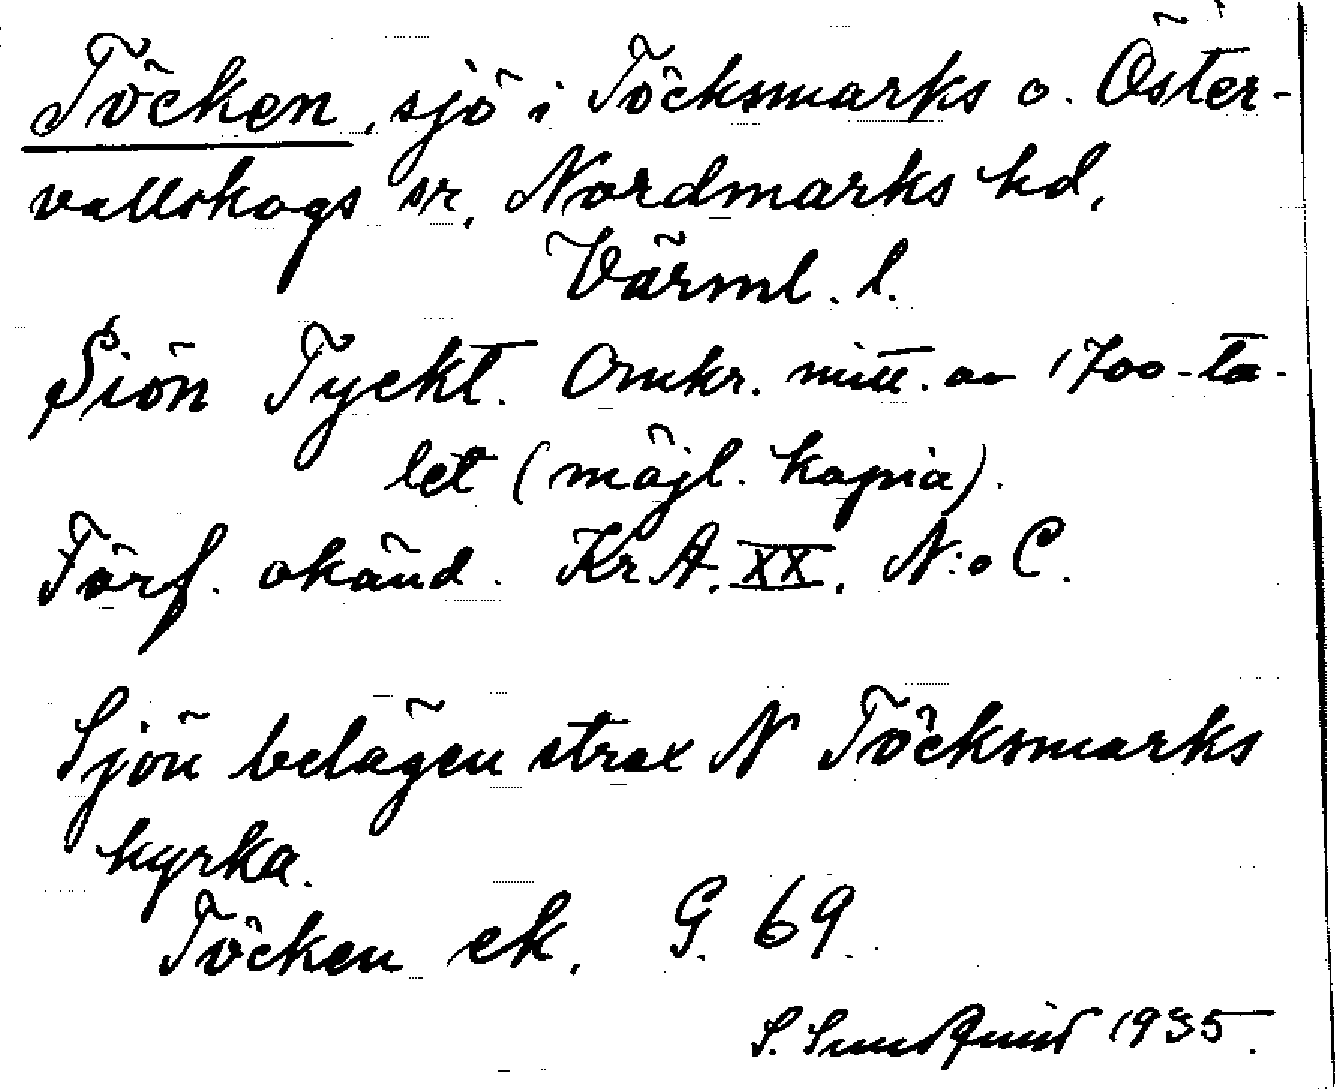 Töcken, sjö i Töcksmarks o. Öster-
vallskogs snr, Nordmarks hd,
Värml. l.
Siön Tyckt. Omkr. mitt. av 1700-ta-
let (möjl. kopia).
Förf. okänd. Kr A. XX. N:o C.
Sjön belägen strax N Töcksmarks
kyrka.
Töcken ek. G. 69.
S. Sundquist 1935.